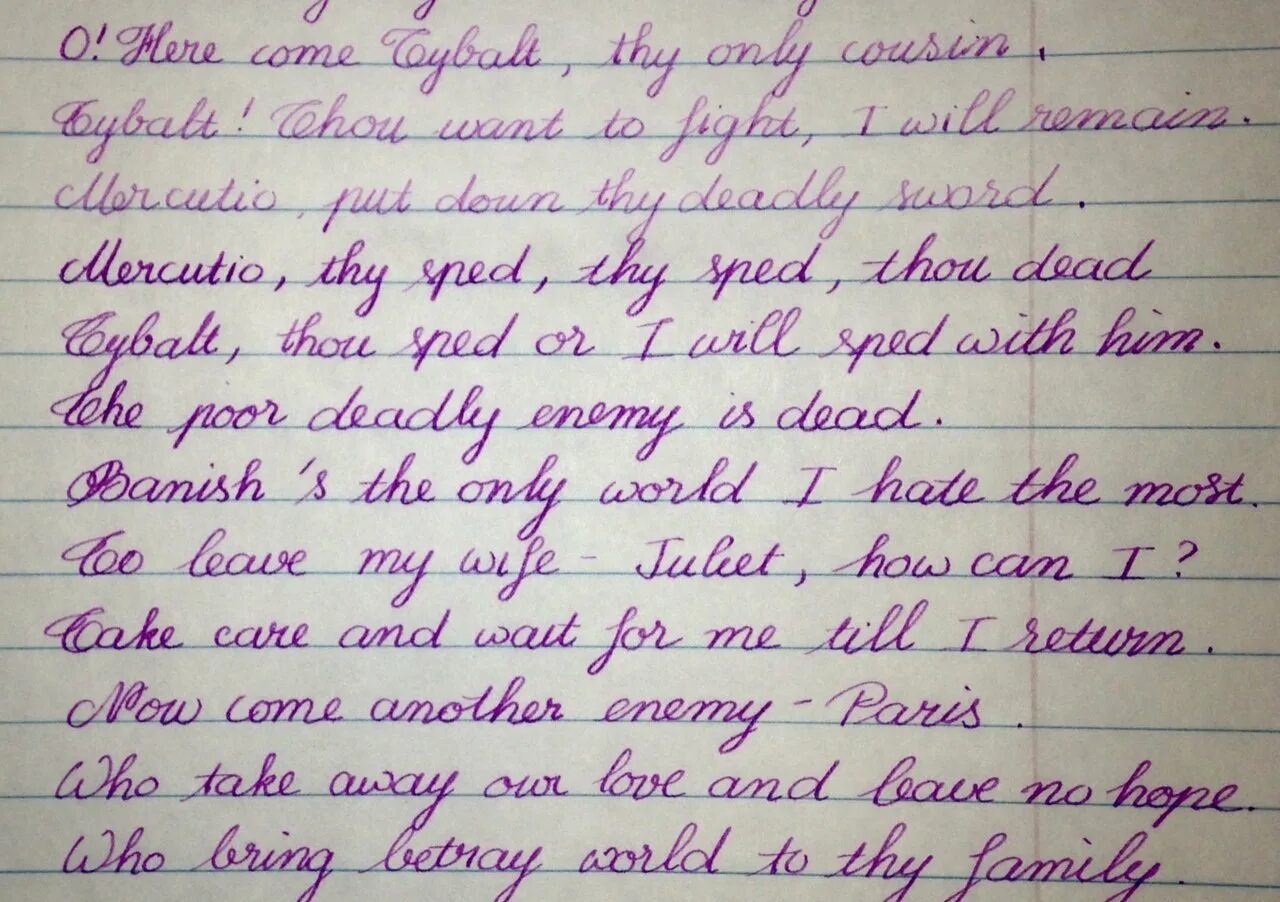 O! Here come Tybalt, thy only cousin.
Tybalt! Thou want to fight, I will remain.
Mercutio, put down thy deadly sword.
Mercutio, thy sped, thy sped, thou dead
Tybalt, thou sped or I will sped with him.
The poor deadly enemy is dead.
Banish's the only world I hate the most.
Too leave my wife - Juliet, how can I?
Take care and wait for me till I return.
Now come another enemy - Paris.
Who take away our love and leave no hope.
Who bring betray world to thy family.